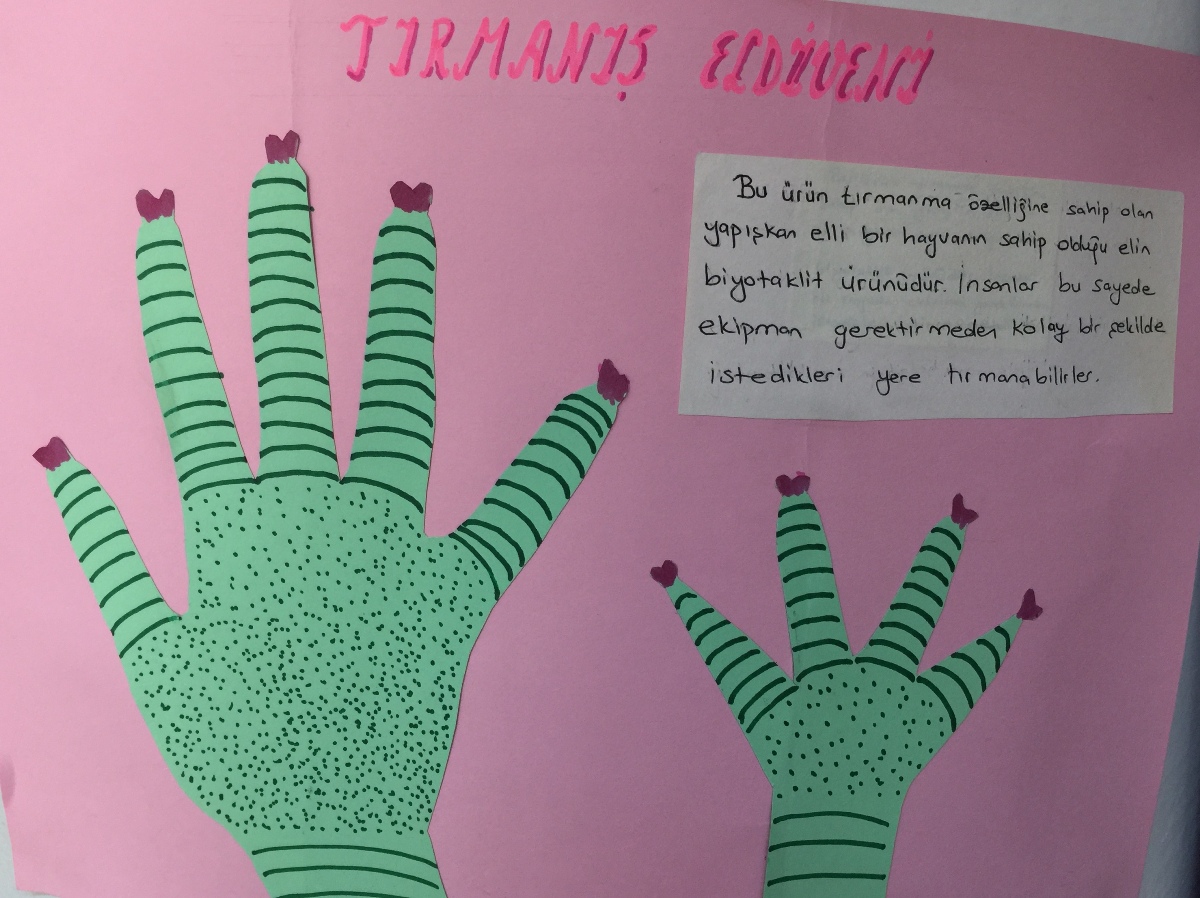 TIRMANIŞ ELDİVENİ
Bu ürün tırmanma özelliğine sahip olan
yapışkan elli bir hayvanın sahip olduğu elin
biyotaklit ürünüdür. İnsanlar bu sayede
ekipman gerektirmeden kolay bir şekilde
istedikleri yere tırmanabilirler.